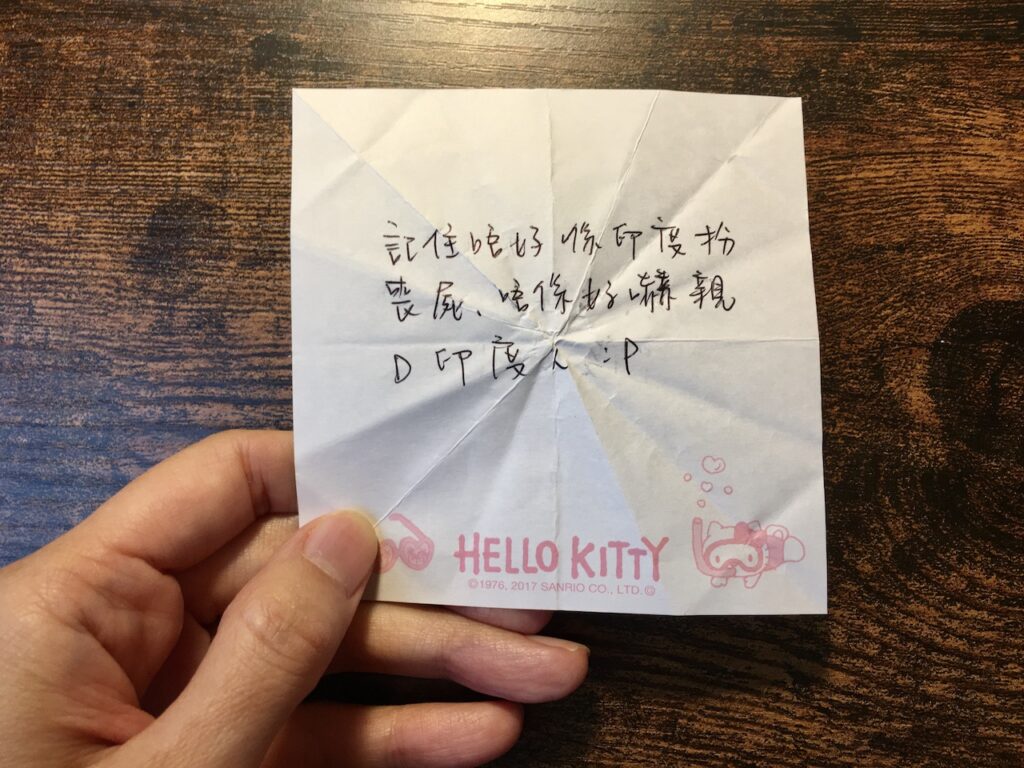 記住唔好係印度扮
喪屍、唔係好嚇親
D 印度人 :P
HELLO KITTY
©1976, 2017 SANRIO CO., LTD.